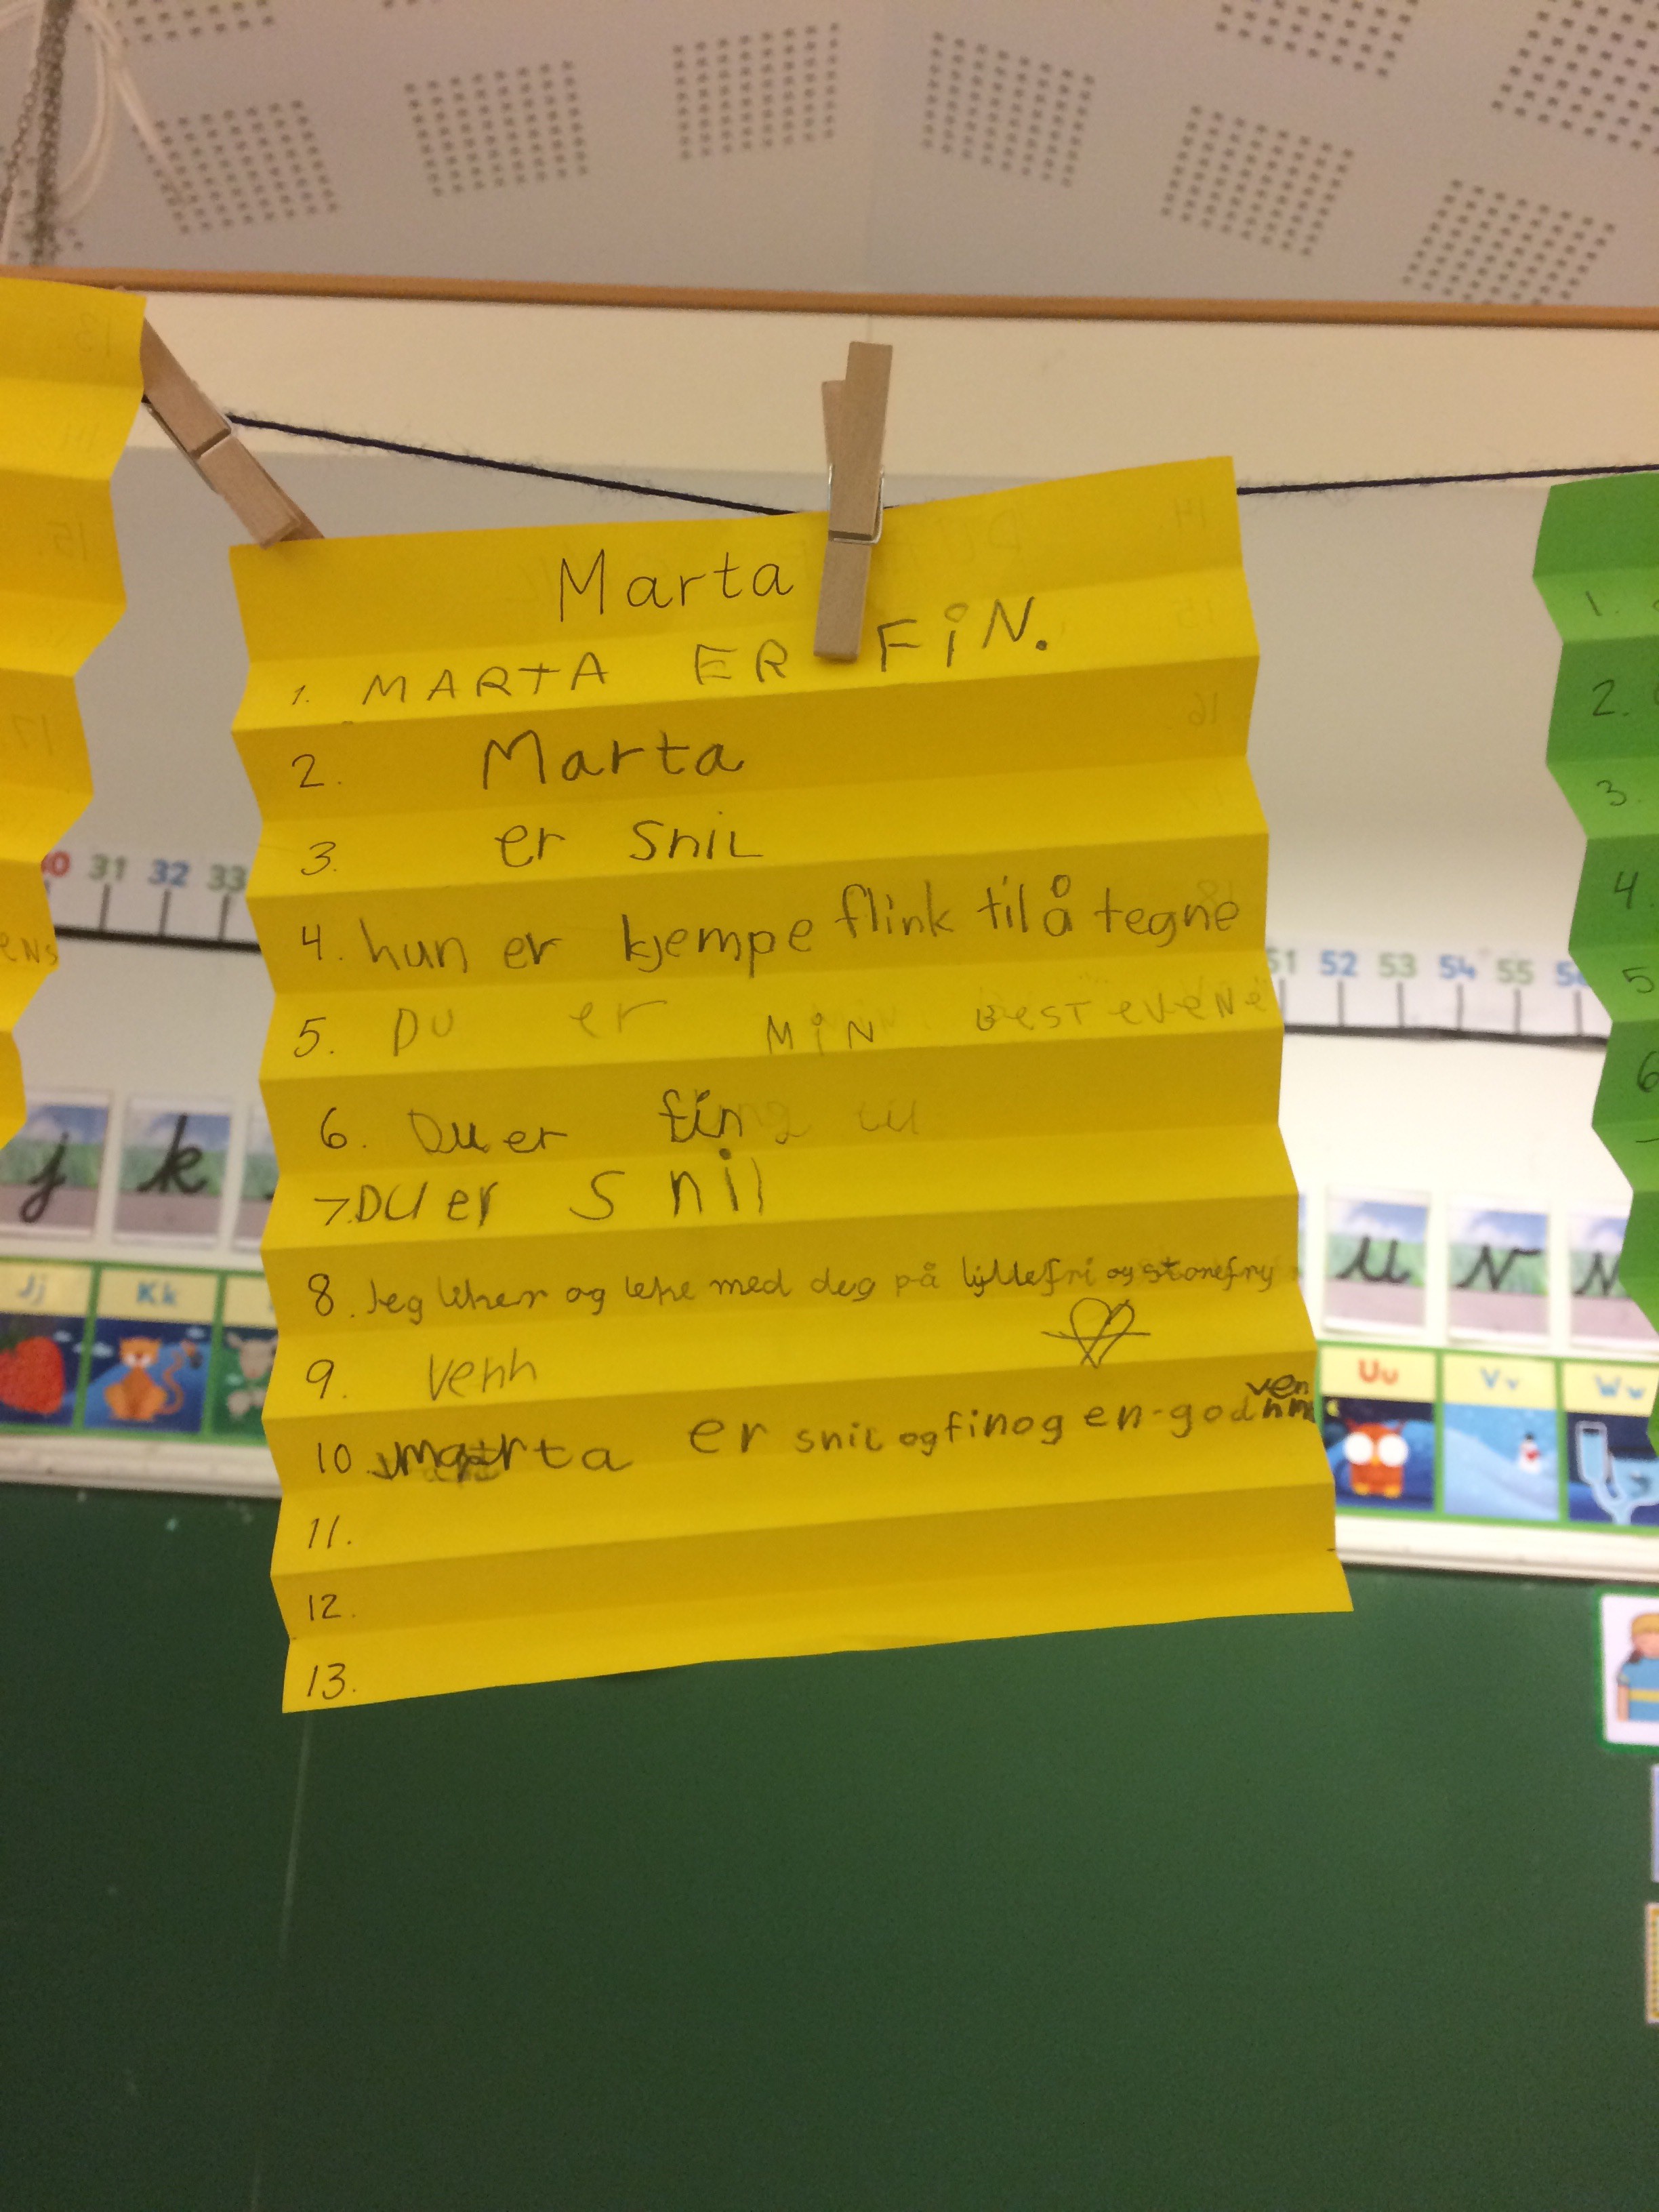 Marta
1. MARTA ER FiN.
2. Marta
3. er sniL
4. hun er kjempe flink til å tegne
5. DU er MiN BesT eveNe
6. Du er fin
7. DU er snil
8. Jeg liker og leke med deg på lyllefri og storefry
9. Venn
10. marta er snil og fin og en-god venn
11.
12.
13.
13
14
15.
16
17
eNs
14.
15
16.
17
18
1.
2.
3.
4.
5
6
30 31 32 33
51 52 53 54 55 56
j k
u v w
Jj Kk
Uu Vv Ww